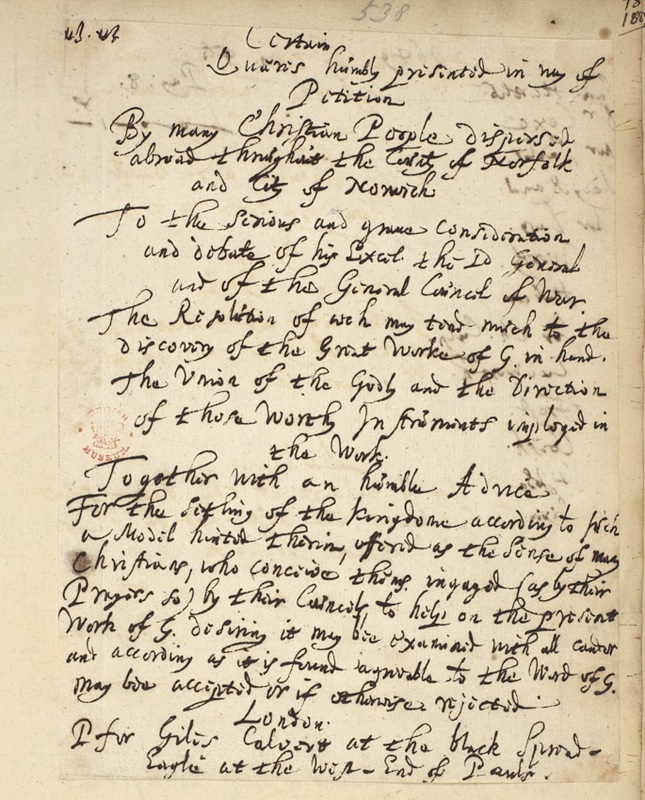 538
Certain
Quæres humbly presented in way of
Petition
By many Christian People dispersed
abroad throughout the County of Norfolk
and City of Norwich
To the serious and grave consideration
and debate of his Excel. the Ld General
and of the General Council of War.
The Resolution of wch may tend much to the
discovery of the Great Worke of G. in hand.
The Union of the Godly and the Direction
of those Worthy Instruments imployed in
the Work.
Together with an humble Advice
For the setling of the kingdome according to such
a Model hinted therin, offered as the Sense of many
Christians, who conceive thems. ingaged (as by their
Prayers so) by their Councels, to help on the present
Work of G. desiring it may bee examined with all candor
and according as it is found agreeable to the Word of G.
may bee accepted or if otherwise rejected
London.
P for Giles Calvert at the black Spread-
Eagle at the West-End of Pauls.